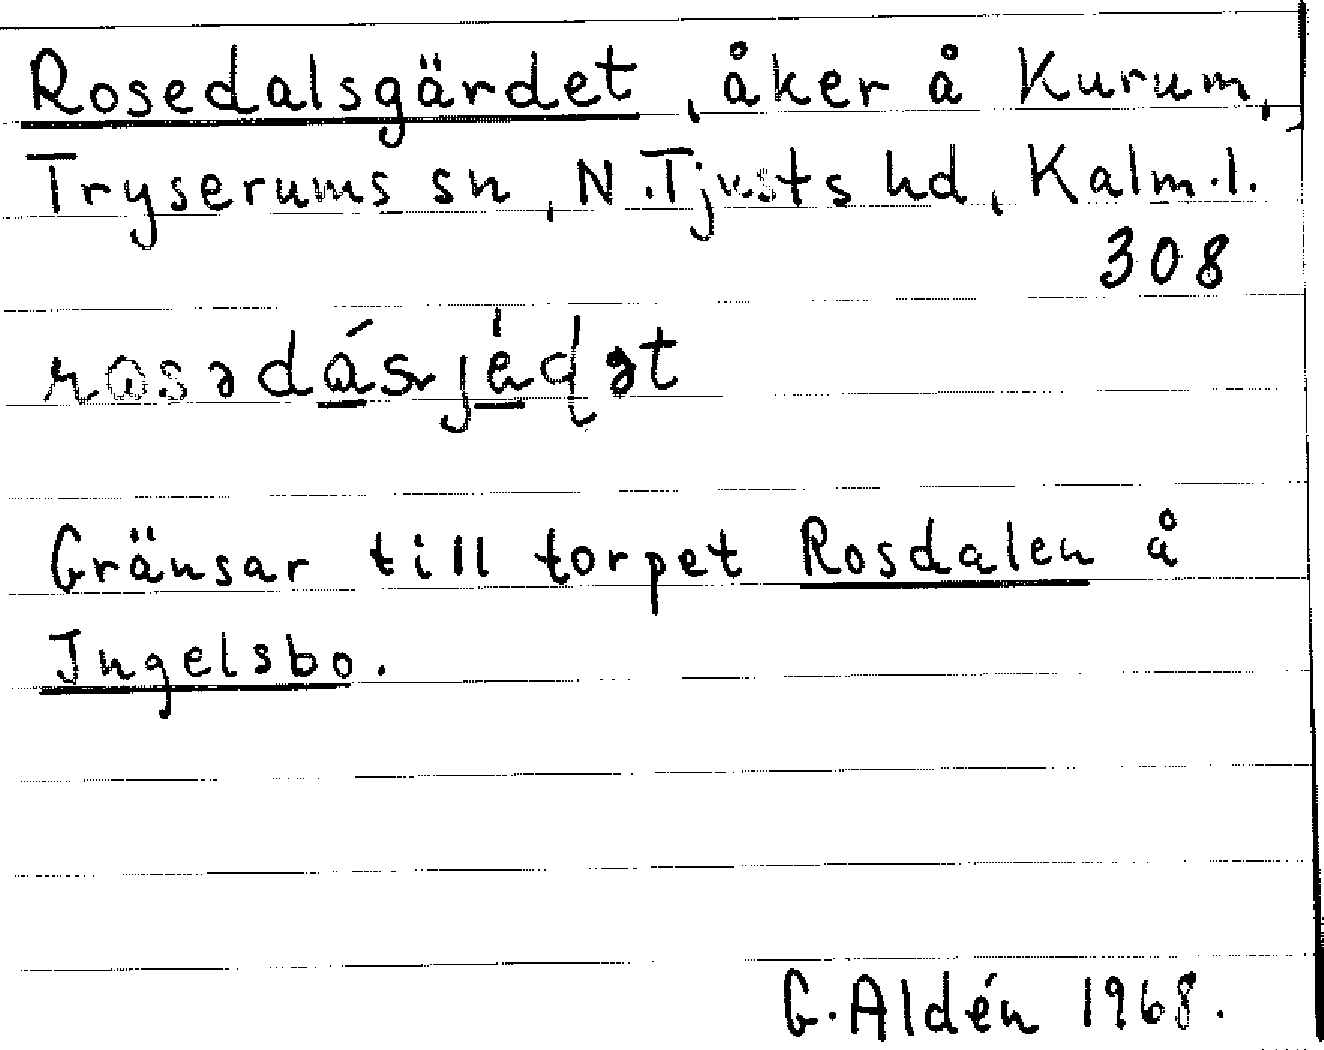 Rosedalsgärdet, åker å Kurum,
Tryserums sn, N.Tjusts hd, Kalm.l.
308
Gränsar till torpet Rosdalen å
Ingelsbo.
G. Aldén 1968.